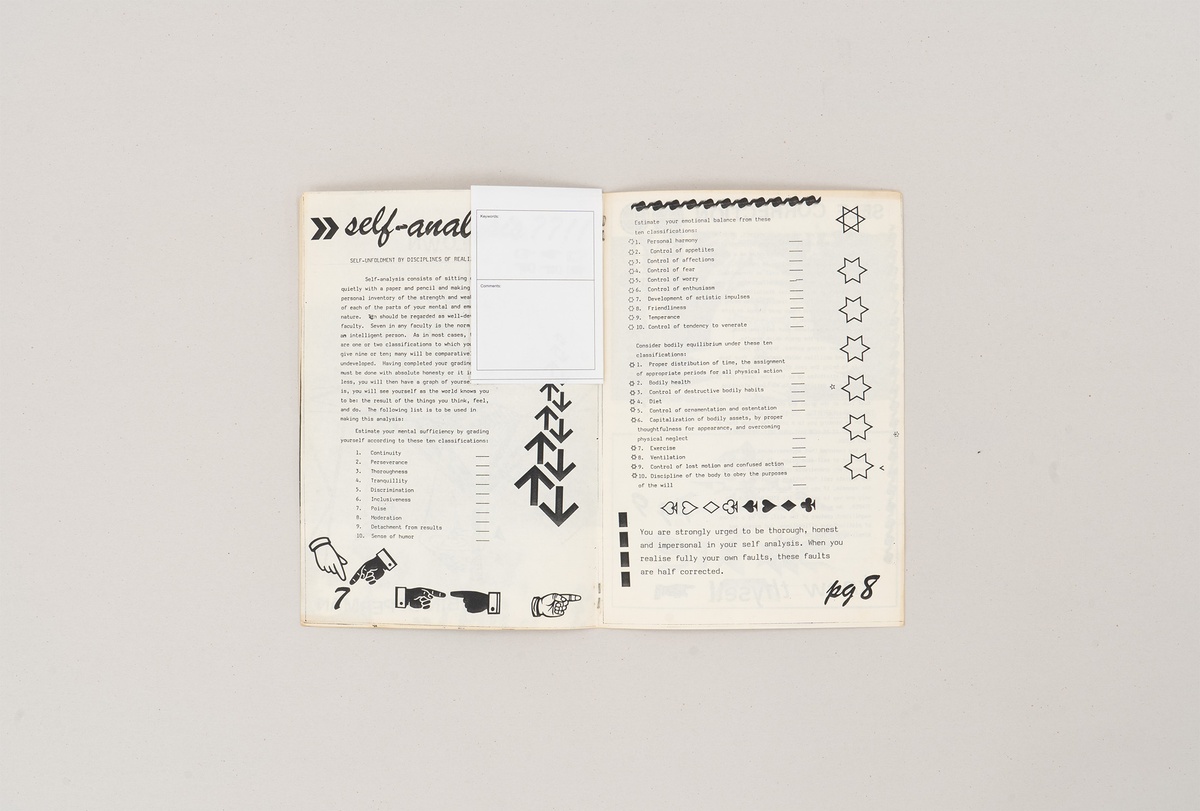 self-anal
SELF-UNFOLDMENT BY DISCIPLINES OF REALI
Self-analysis consists of sitting
quietly with a paper and pencil and making
personal inventory of the strength and weak
of each of the parts of your mental and emo
nature. Ten should be regarded as well-dev
faculty. Seven in any faculty is the norm
an intelligent person. As in most cases,
are one or two classifications to which you
give nine or ten; many will be comparative
undeveloped. Having completed your grading
must be done with absolute honesty or it i
less, you will then have a graph of yourse
is, you will see yourself as the world knows you
to be: the result of the things you think, feel,
and do. The following list is to be used in
making this analysis:
Estimate your mental sufficiency by grading
yourself according to these ten classifications:
1. Continuity
2. Perseverance
3. Thoroughness
4. Tranquillity
5. Discrimination
6. Inclusiveness
7. Poise
8. Moderation
9. Detachment from results
10. Sense of humor
7
Keywords:
Comments:
Estimate your emotional balance from these
ten classifications:
1. Personal harmony
2. Control of appetites
3. Control of affections
4. Control of fear
5. Control of worry
6. Control of enthusiasm
7. Development of artistic impulses
8. Friendliness
9. Temperance
10. Control of tendency to venerate
Consider bodily equilibrium under these ten
classifications:
1. Proper distribution of time, the assignment
of appropriate periods for all physical action
2. Bodily health
3. Control of destructive bodily habits
4. Diet
5. Control of ornamentation and ostentation
6. Capitalization of bodily assets, by proper
thoughtfulness for appearance, and overcoming
physical neglect
7. Exercise
8. Ventilation
9. Control of lost motion and confused action
10. Discipline of the body to obey the purposes
of the will
You are strongly urged to be thorough, honest
and impersonal in your self analysis. When you
realise fully your own faults, these faults
are half corrected.
pg 8